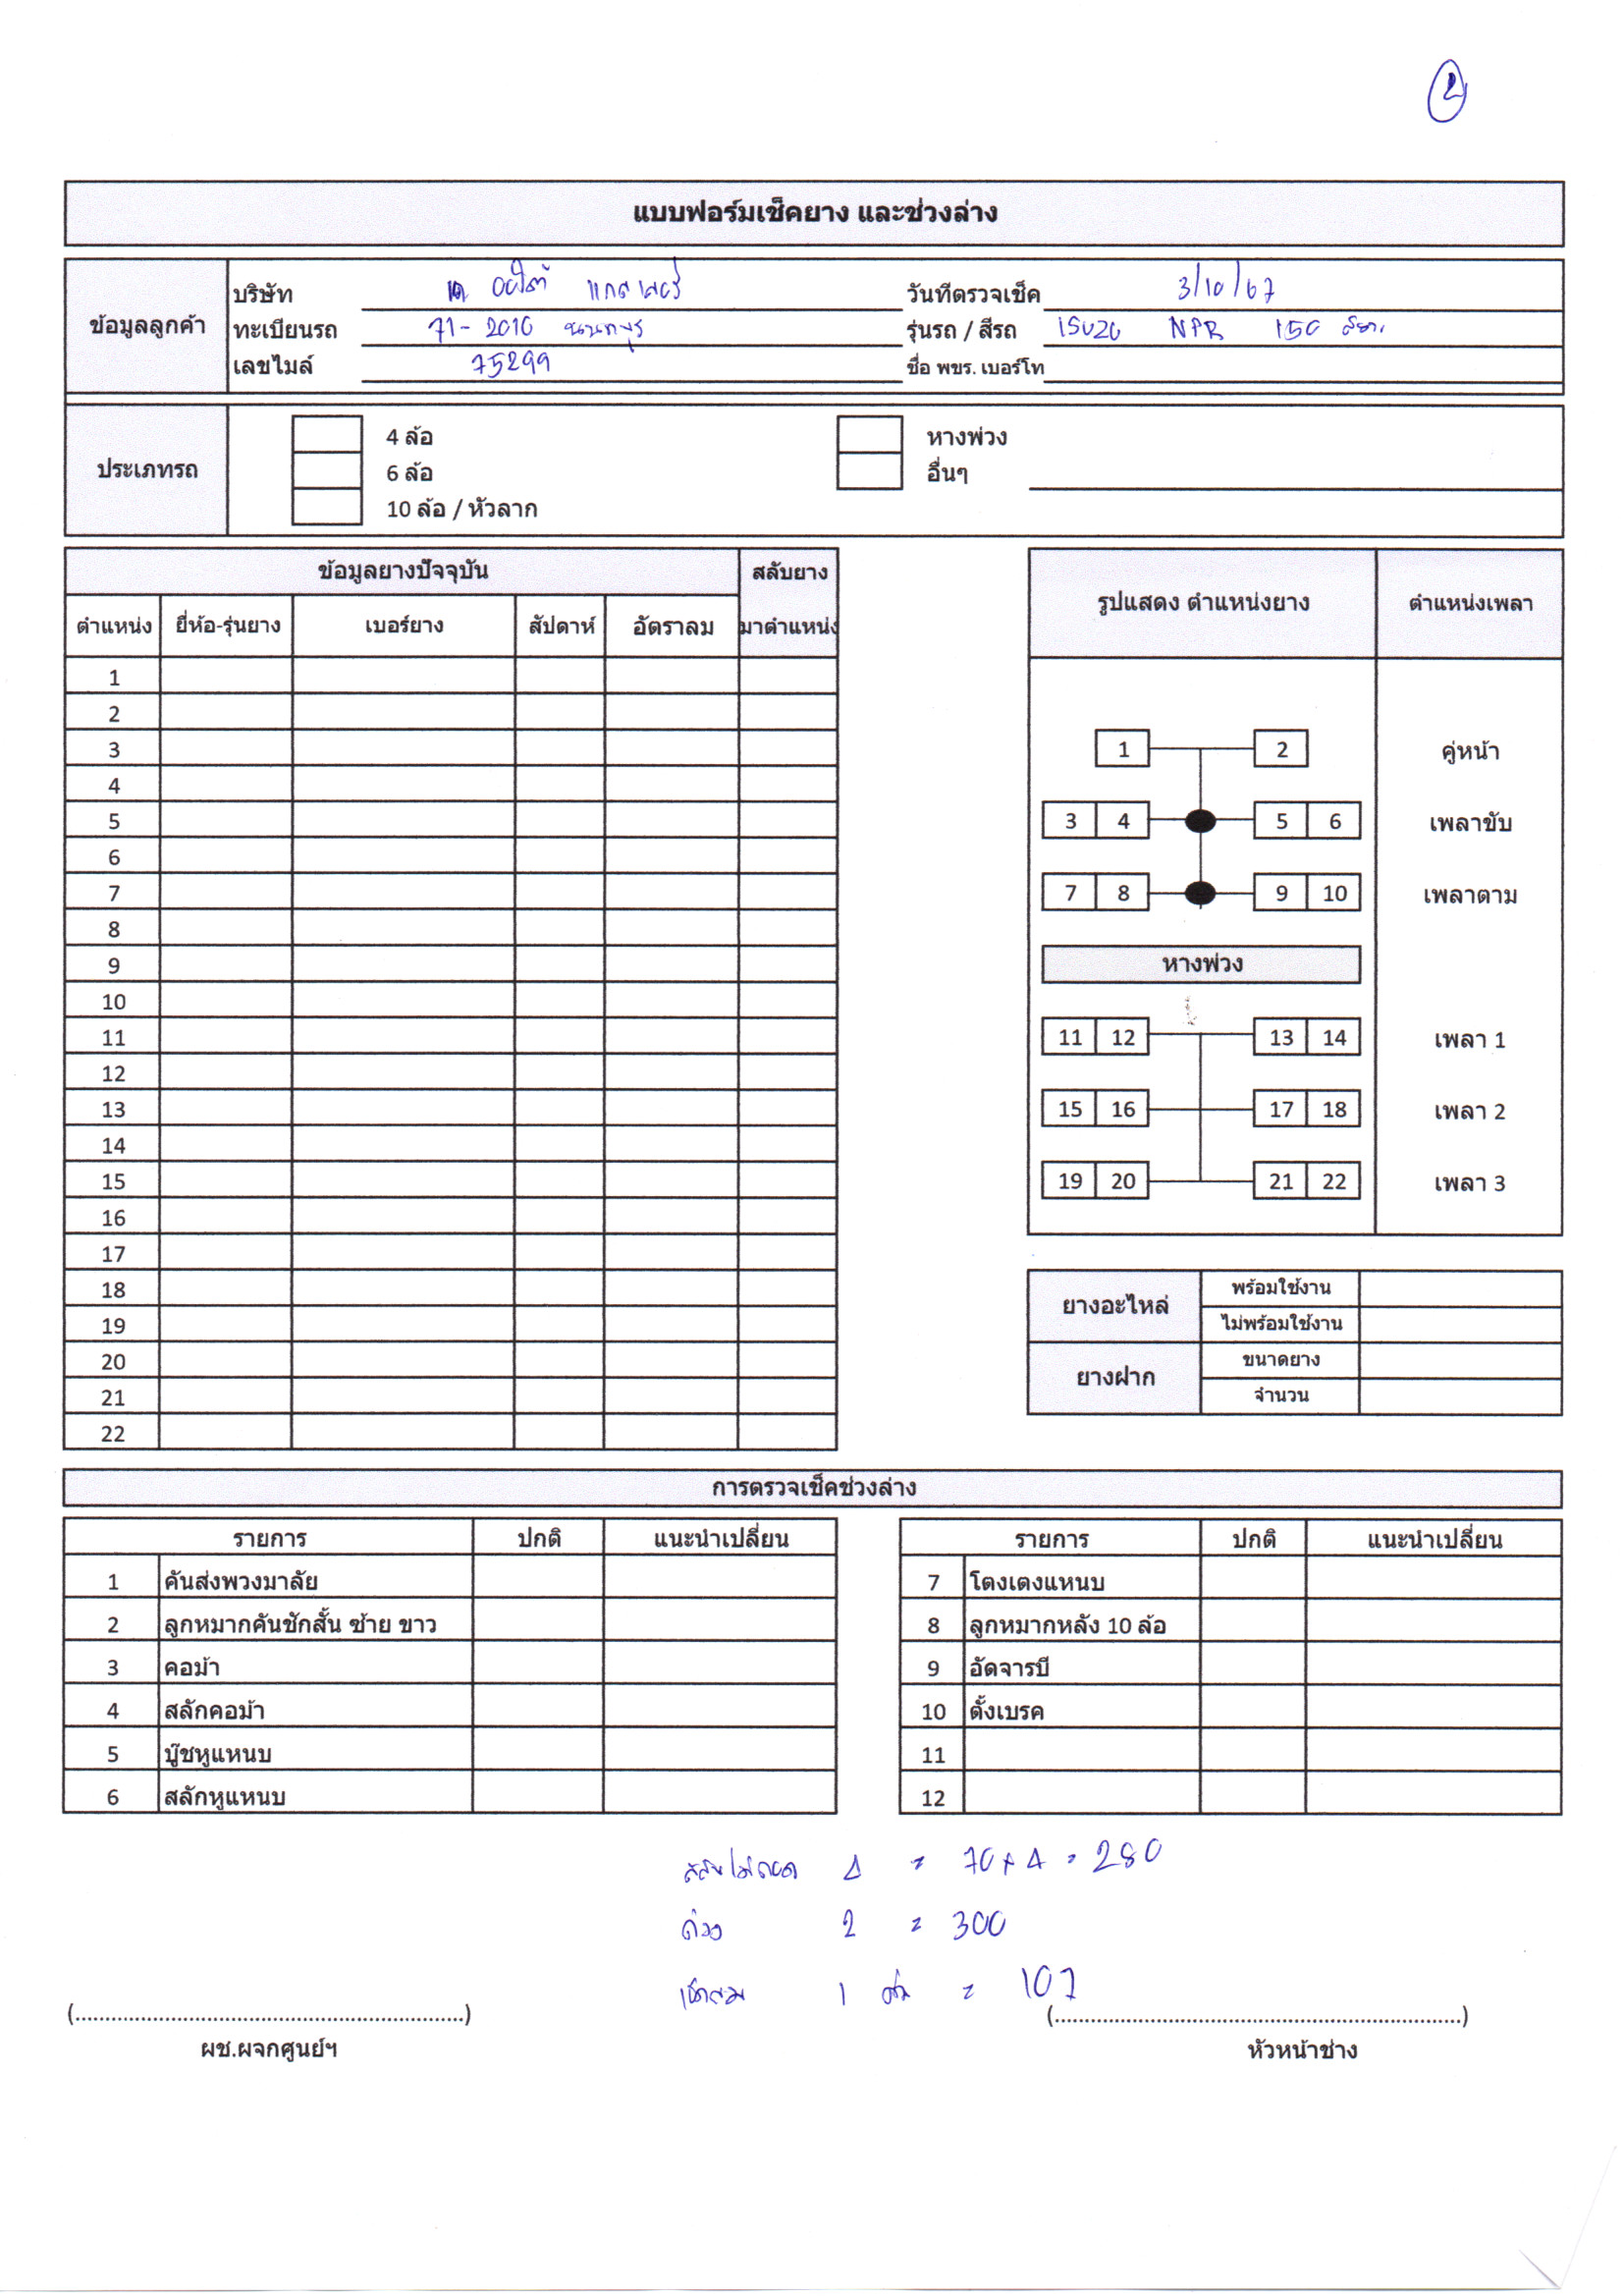 2
แบบฟอร์มเช็คยาง และช่วงล่าง
ข้อมูลลูกค้า
บริษัท
วันทีตรวจเช็ค 3/10/67
ทะเบียนรถ 71-2010 นนทบุรี
รุ่นรถ / สีรถ ISUZU NPR 150
เลขไมล์ 75299
ชื่อ พขร. เบอร์โท
ประเภทรถ
4 ล้อ
หางพ่วง
6 ล้อ
อื่นๆ
10 ล้อ / หัวลาก
ข้อมูลยางปัจจุบัน สลับยาง
ตำแหน่ง ยี่ห้อ-รุ่นยาง เบอร์ยาง สัปดาห์ อัตราลม มาตำแหน่ง
1
2
3
4
5
6
7
8
9
10
11
12
13
14
15
16
17
18
19
20
21
22
รูปแสดง ตำแหน่งยาง ตำแหน่งเพลา
1 2 คู่หน้า
3 4 5 6 เพลาขับ
7 8 9 10 เพลาตาม
หางพ่วง
11 12 13 14 เพลา 1
15 16 17 18 เพลา 2
19 20 21 22 เพลา 3
ยางอะไหล่ พร้อมใช้งาน
ไม่พร้อมใช้งาน
ยางฝาก ขนาดยาง
จำนวน
การตรวจเช็คช่วงล่าง
รายการ ปกติ แนะนำเปลี่ยน
1 คันส่งพวงมาลัย
2 ลูกหมากคันชักสั้น ซ้าย ขาว
3 คอม้า
4 สลักคอม้า
5 บู๊ชหูแหนบ
6 สลักหูแหนบ
รายการ ปกติ แนะนำเปลี่ยน
7 โตงเตงแหนบ
8 ลูกหมากหลัง 10 ล้อ
9 อัดจารบี
10 ตั้งเบรค
11
12
สลับไม่ถอด 4 = 70 x 4 = 280
ถ่วง 2 = 300
เช็คลม 1 = 107
(................................................................)
(................................................................)
ผช.ผจกศูนย์ฯ
หัวหน้าช่าง